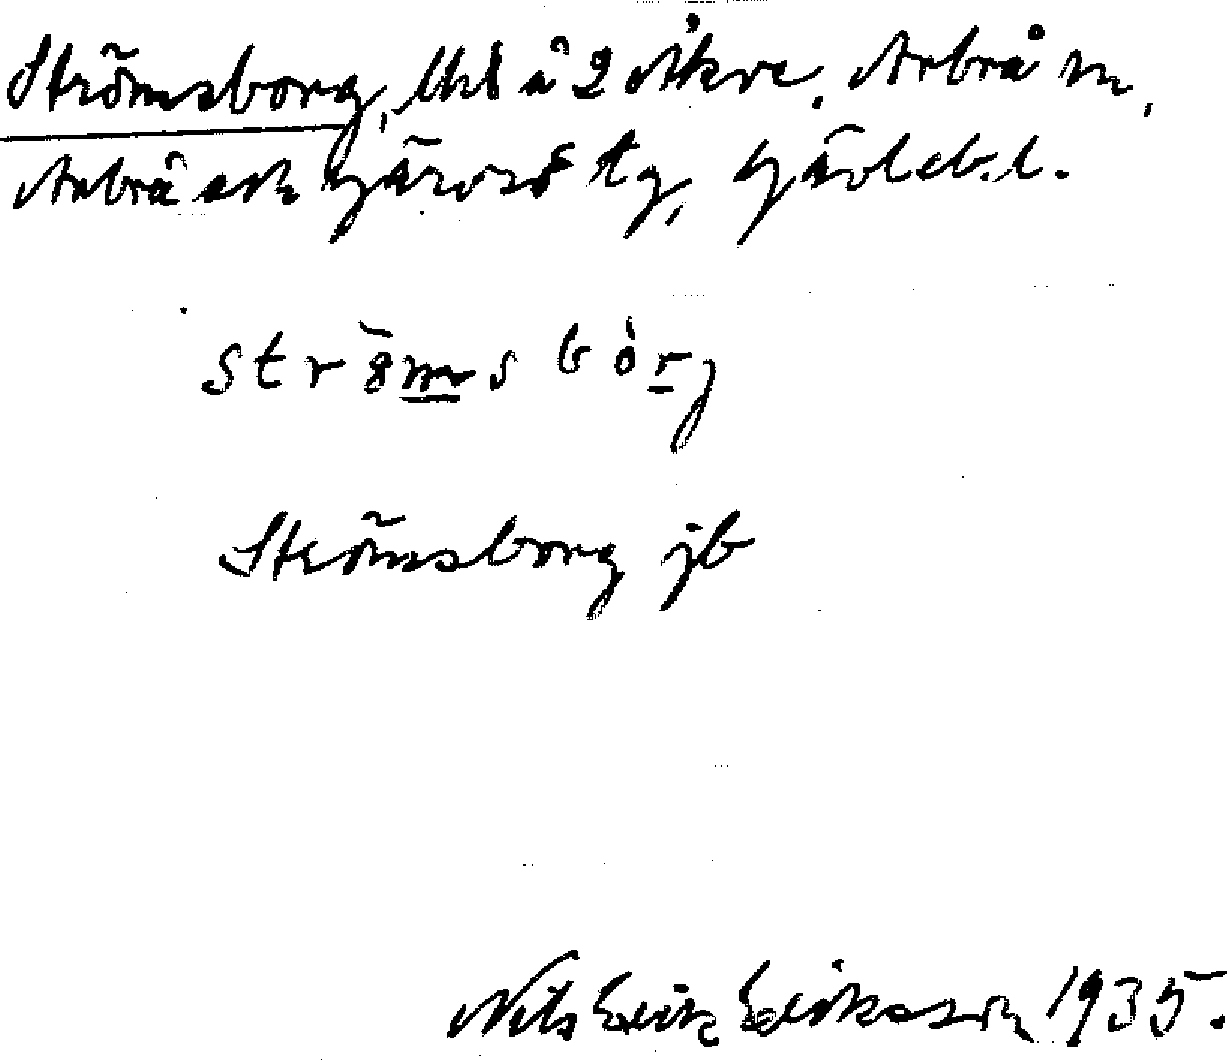 Strömsborg, lht å 2 Åkre, Arbrå sn,
Arbrå och Järvsö tg, Gävleb. l.
strömsbòrj
Strömsborg jb
Nils Erik Eriksson 1935.